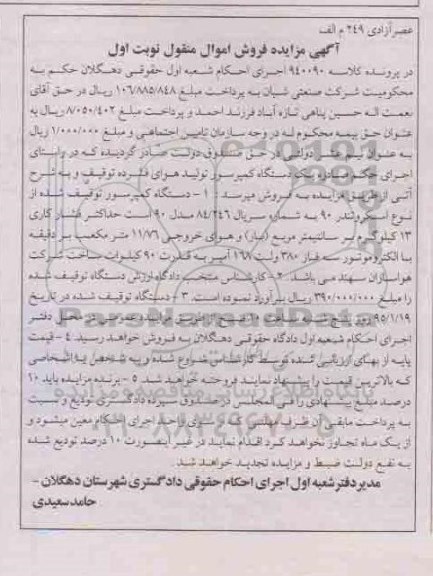 عصر آزادی ۲۴۹ م الف
آگهی مزایده فروش اموال منقول نوبت اول
در پرونده کلاسه ۹۴۰۰۹۰ اجرای احکام شعبه اول حقوقی دهگلان حکم به
محکومیت شرکت صنعتی شبان به پرداخت مبلغ ۱۰۶/۸۸۵/۸۴۸ ریال در حق آقای
نعمت اله حسین پناهی تازه آباد فرزند احمد و پرداخت مبلغ ۸/۰۵۰/۴۰۲ ریال به
عنوان حق بیمه محکوم له در وجه سازمان تامین اجتماعی و مبلغ ۱/۰۰۰/۰۰۰ ریال
به عنوان نیم عشر دولتی در حق صندوق دولت صادر گردیده که در راستای
اجرای حکم صادره یک دستگاه کمپرسور تولید هوای فشرده توقیف و به شرح
آتی از طریق مزایده به فروش میرسد. ۱ - دستگاه کمپرسور توقیف شده از
نوع اسکروتندر ۹۰ به شماره سریال ۸۴/۲۴۶ مدل ۹۰ است حداکثر فشار کاری
۱۳ کیلوگرم بر سانتیمتر مربع (بار) و هوای خروجی ۱۱/۷۶ متر مکعب بر دقیقه
با الکتروموتور سه فاز ۳۸۰ ولت ۱۶۸ آمپر به قدرت ۹۰ کیلووات ساخت شرکت
هواسازان سهند می باشد. ۲- کارشناس منتخب دادگاه ارزش دستگاه توقیف شده
را مبلغ ۳۹۰/۰۰۰/۰۰۰ ریال برآورد نموده است. ۳ - دستگاه توقیف شده در تاریخ
۹۵/۱/۱۹ روز پنج شنبه ساعت ۱۰ صبح از طریق مزایده عمومی در محل دفتر
اجرای احکام شعبه اول دادگاه حقوقی دهگلان به فروش خواهد رسید. ۴ - قیمت
پایه از بهای ارزیابی شده توسط کارشناس شروع شده و به شخص یا اشخاصی
که بالاترین قیمت را پیشنهاد نمایند فروخته خواهد شد. ۵ - برنده مزایده باید ۱۰
درصد مبلغ پیشنهادی را فی المجلس در صندوق سپرده دادگستری تودیع و نسبت
به پرداخت مابقی آن ظرف مهلتی که از سوی دادورز اجرای احکام معین میشود و
از یک ماه تجاوز نخواهد کرد اقدام نماید در غیر اینصورت ۱۰ درصد تودیع شده
به نفع دولت ضبط و مزایده تجدید خواهد شد.
مدیر دفتر شعبه اول اجرای احکام حقوقی دادگستری شهرستان دهگلان -
حامد سعیدی
ParsNamadData